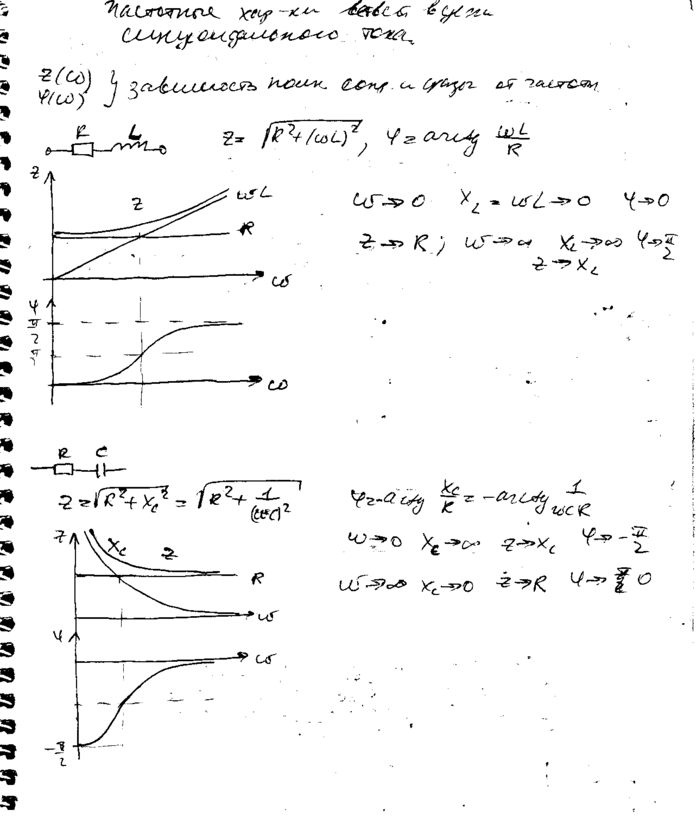 Частотные хар-ки ветвей в цепи
синусоидального тока.
Z(ω)
φ(ω) } зависимость полн. сопр. и фазы от частоты
R L
Z = √(R²+(ωL)²), φ = arctg ωL/R
Z
Z ωL
R
ω
ω→0 X_L = ωL→0 φ→0
Z→R; ω→∞ X_L→∞ φ→π/2
Z→X_L
φ
π/2
ω
R C
Z = √(R²+X_c²) = √(R²+1/(ωC)²)
φ = -arctg X_c/R = -arctg 1/ωCR
Z X_c Z
R
ω
ω→0 X_c→∞ Z→X_c φ→-π/2
ω→∞ X_c→0 Z→R φ→0
φ
ω
-π/2